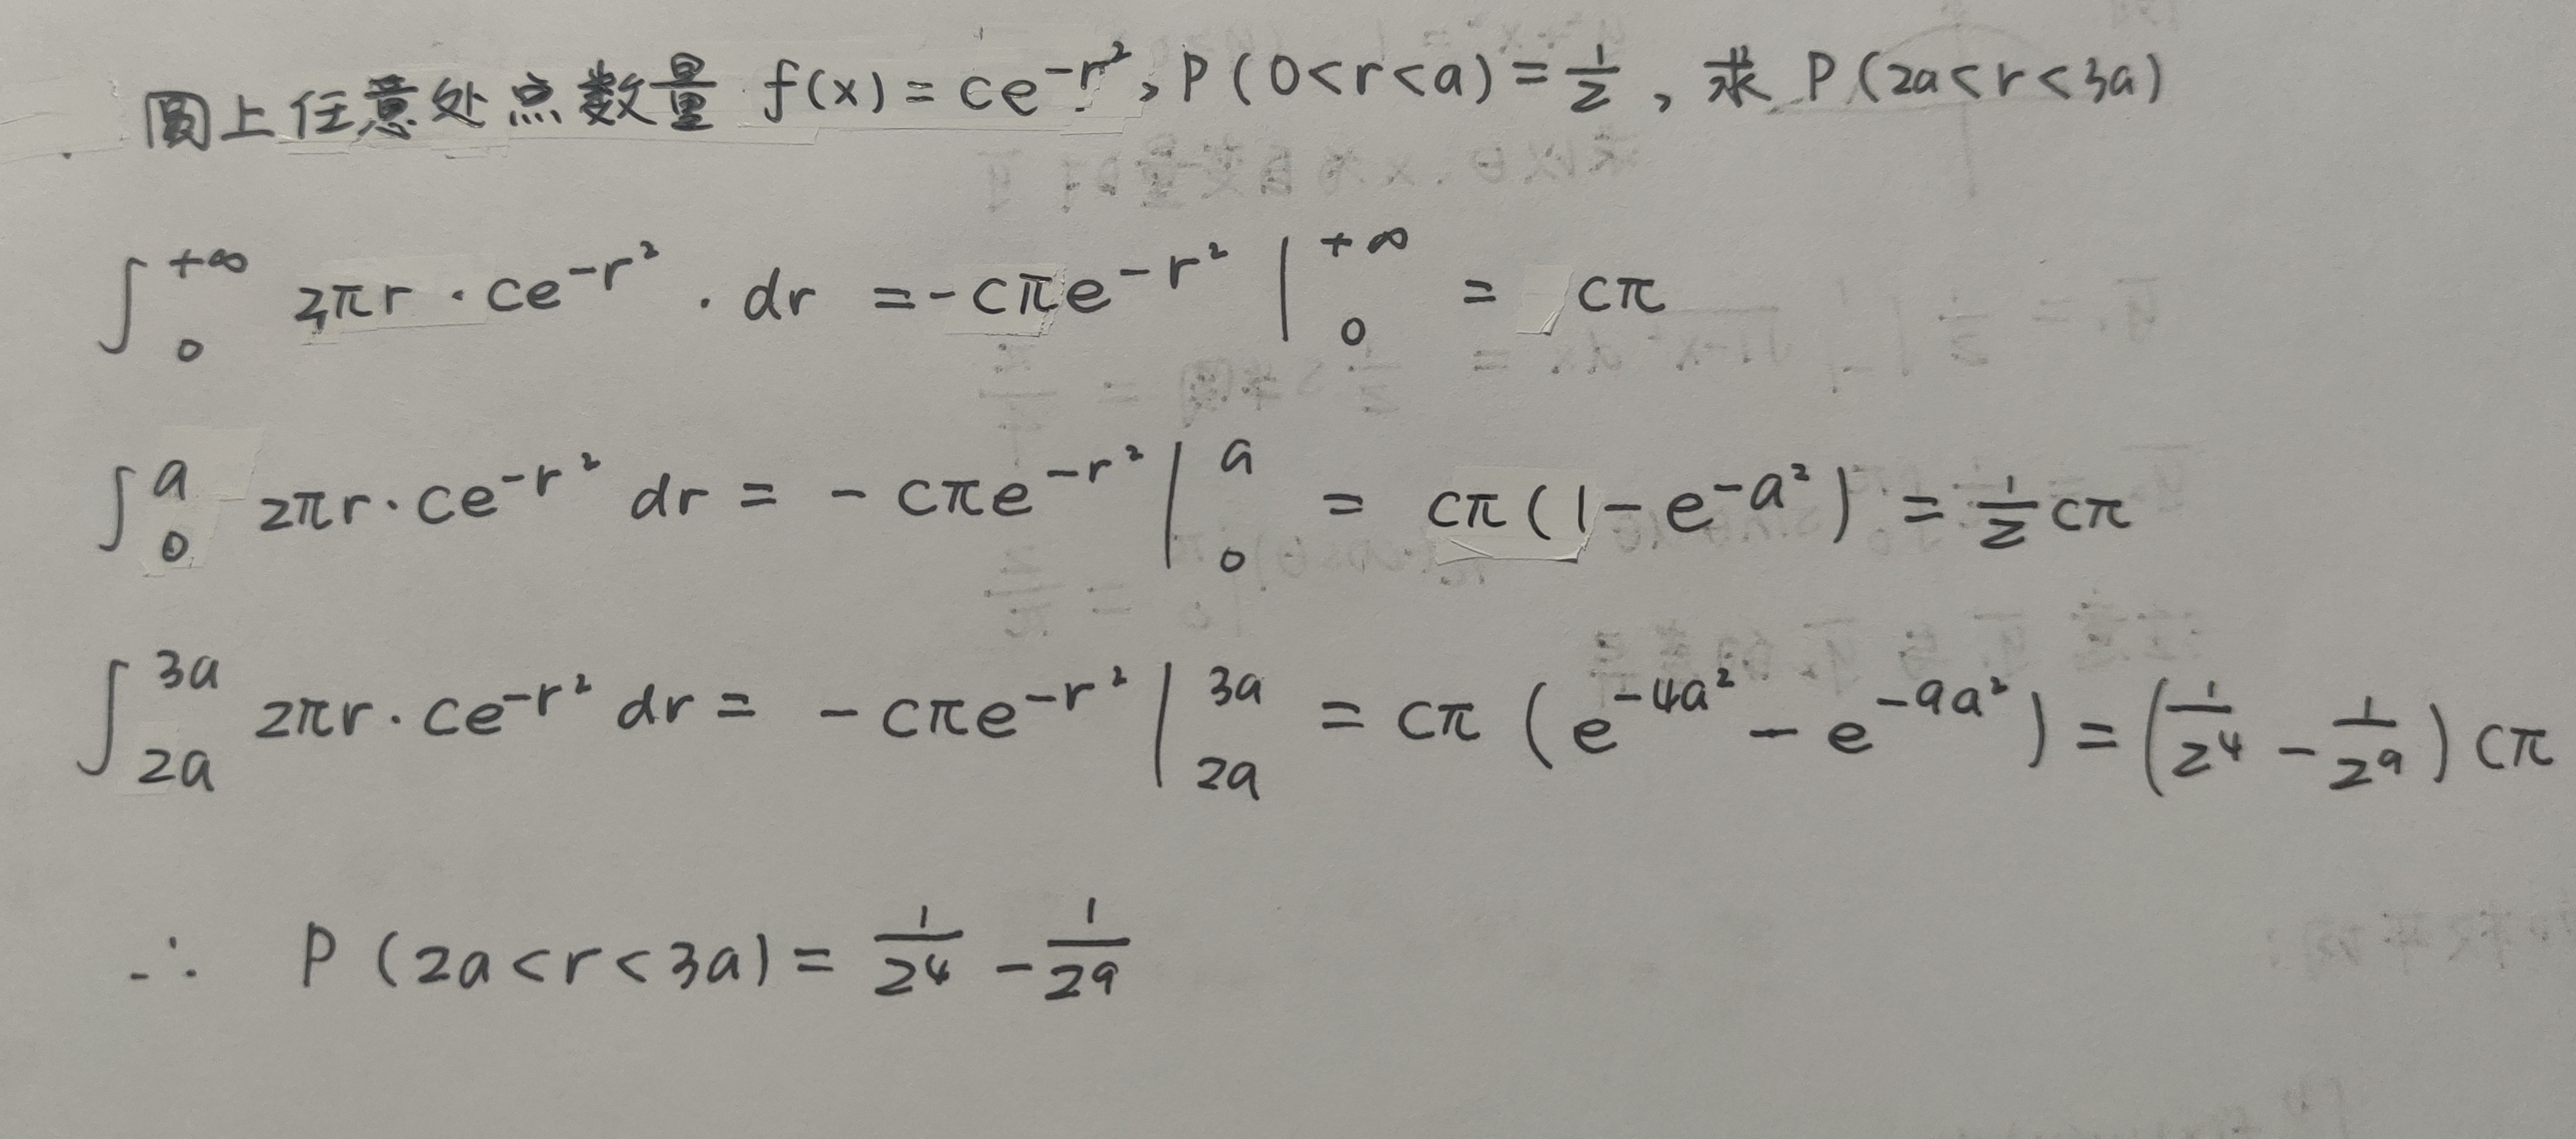 圆上任意处点数量 f(x) = ce^{-r²}, P(0<r<a) = 1/2, 求 P(2a<r<3a)
∫_0^{+∞} 2πr · ce^{-r²} · dr = -cπe^{-r²} |_0^{+∞} = cπ
∫_0^a 2πr · ce^{-r²} dr = -cπe^{-r²} |_0^a = cπ(1-e^{-a²}) = 1/2 cπ
∫_{2a}^{3a} 2πr · ce^{-r²} dr = -cπe^{-r²} |_{2a}^{3a} = cπ(e^{-4a²} - e^{-9a²}) = (1/2⁴ - 1/2⁹) cπ
∴ P(2a<r<3a) = 1/2⁴ - 1/2⁹